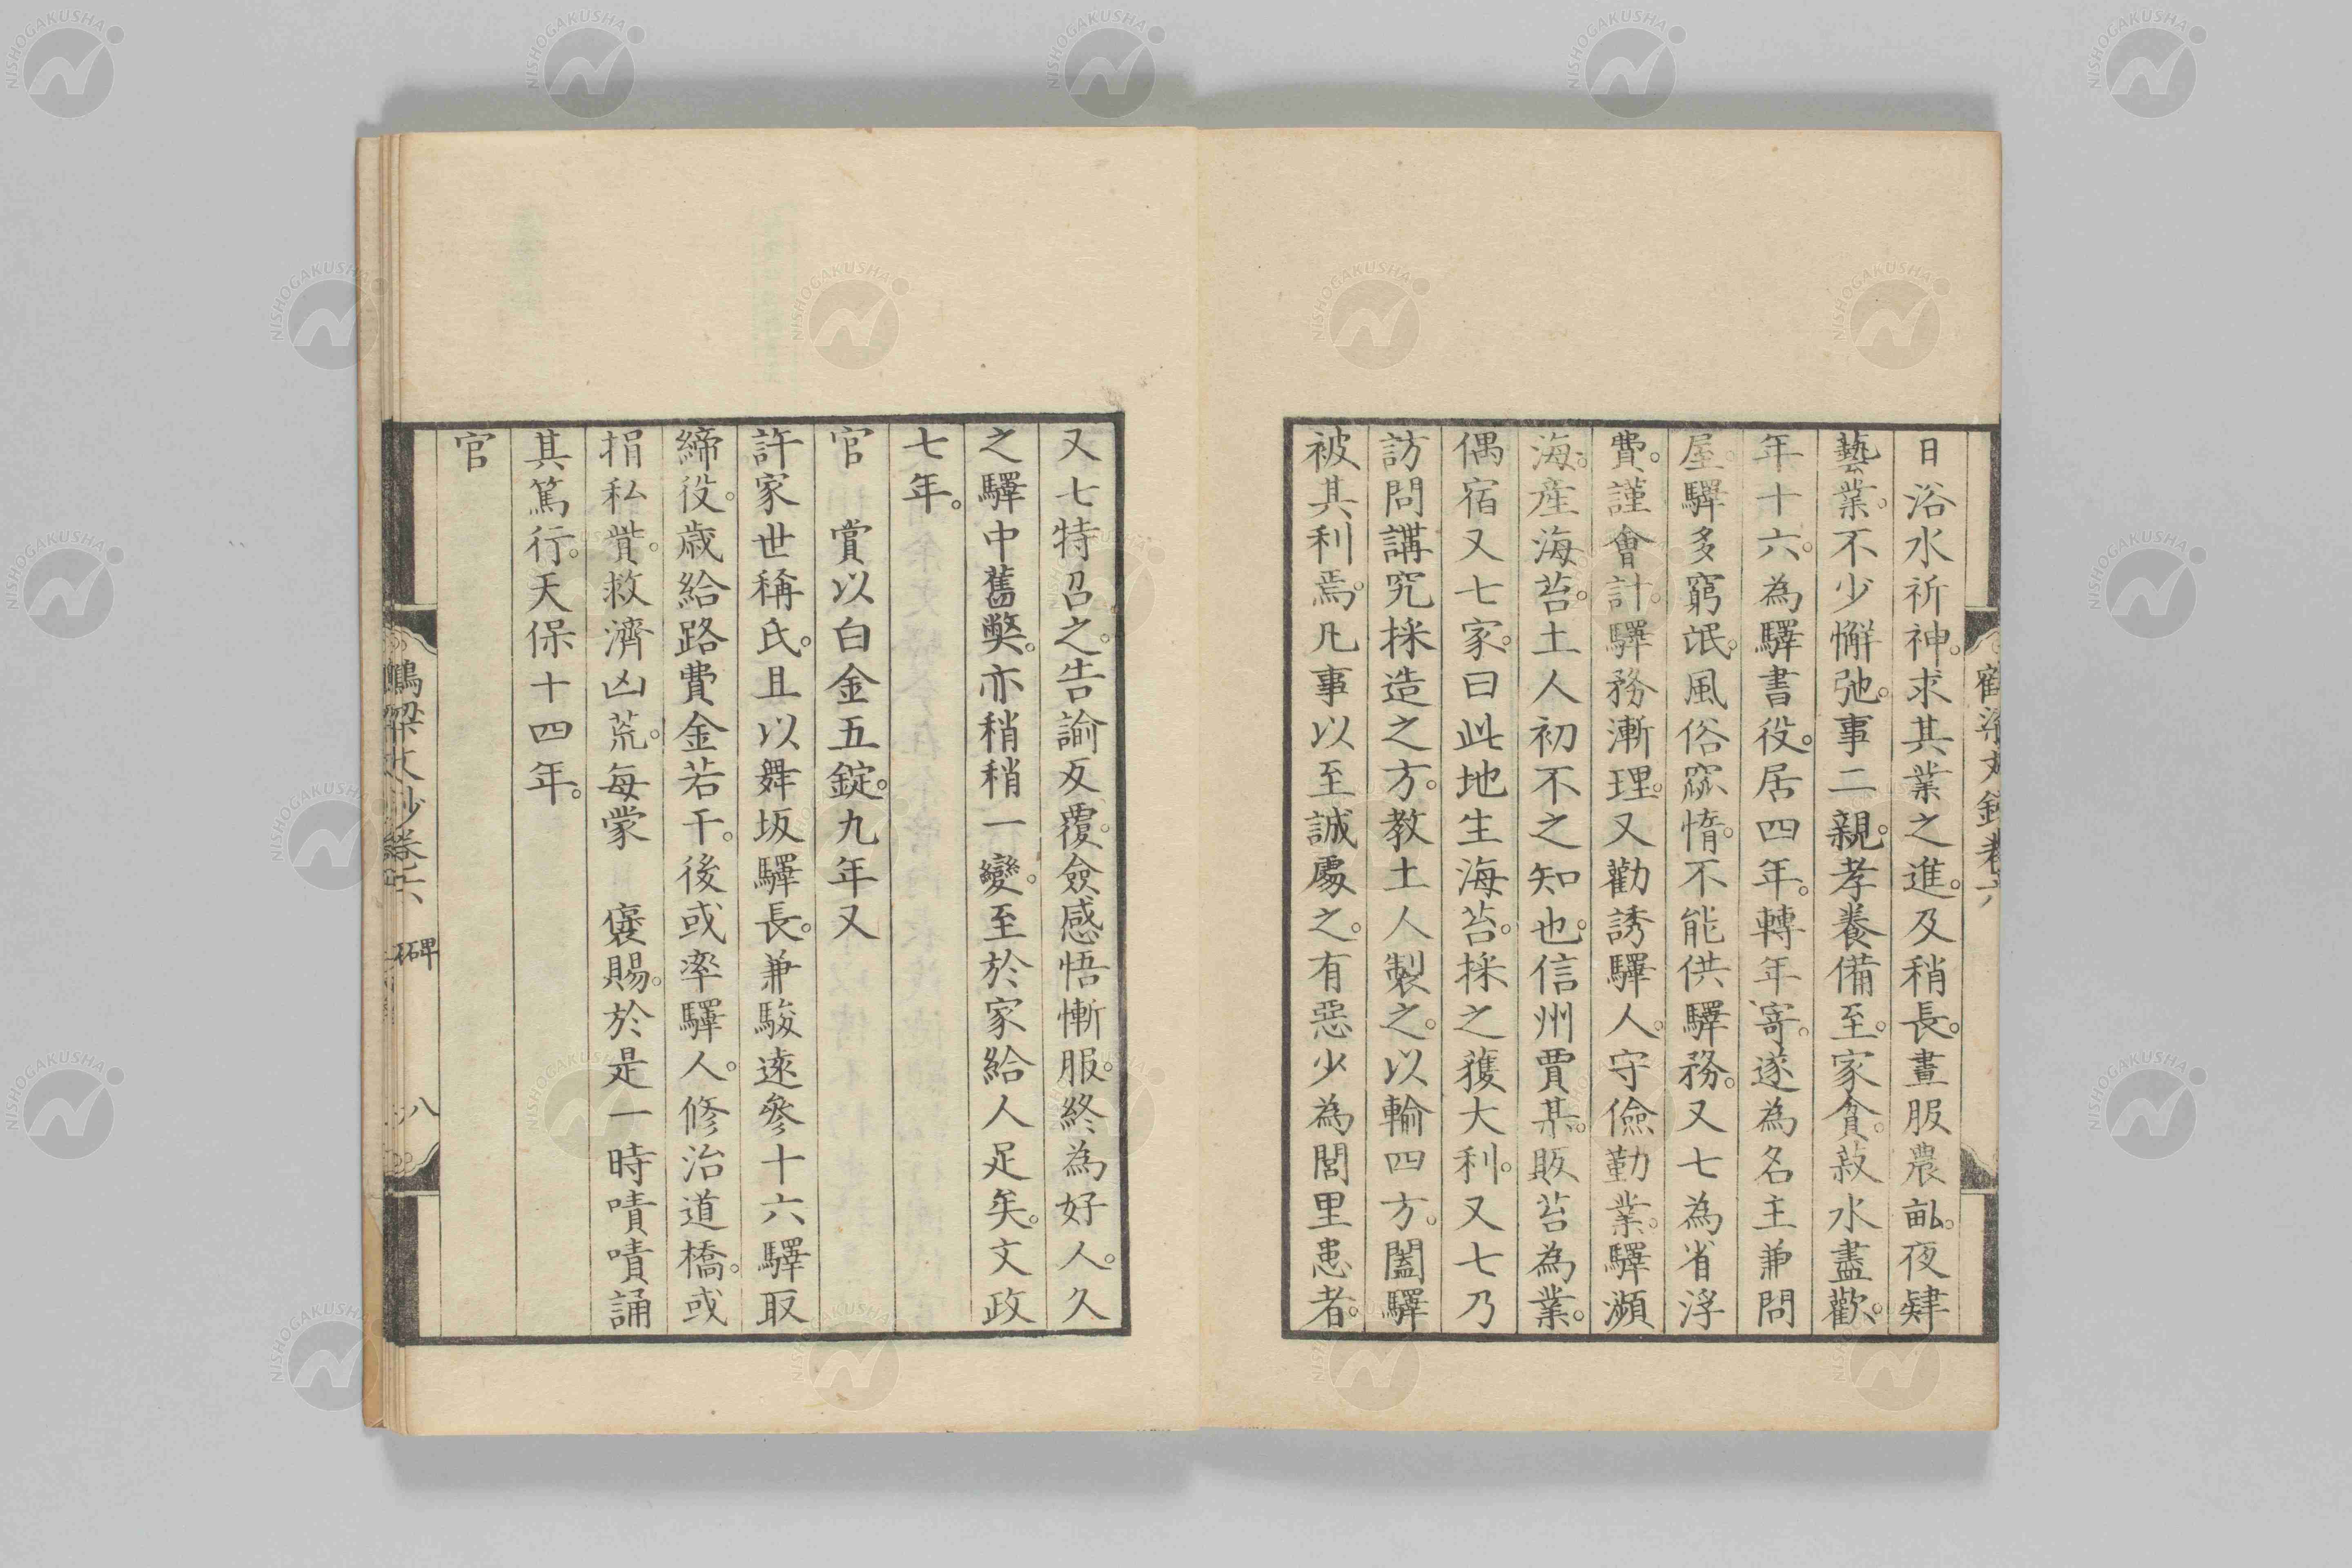 日浴水祈神。求其業之進。及稍長。晝服農畝。夜肄
藝業。不少懈弛。事二親。孝養備至。家貧。菽水盡歡。
年十六。為驛書役。居四年。轉年寄。遂為名主兼問
屋。驛多窮氓。風俗窳惰。不能供驛務。又七為省浮
費。謹會計。驛務漸理。又勸誘驛人。守儉勤業。驛瀕
海。産海苔。土人初不之知也。信州賈某。販苔為業。
偶宿又七家。曰此地生海苔。採之獲大利。又七乃
訪問講究採造之方。教土人製之。以輸四方。闔驛
被其利焉。凡事以至誠處之。有惡少為閭里患者。
又七特召之。告諭反覆。僉感悟慚服。終為好人。久
之驛中舊弊。亦稍稍一變。至於家給人足矣。文政
七年。
官　賞以白金五錠。九年又
許家世稱氏。且以舞坂驛長。兼駿遠參十六驛取
締役。歳給路費金若干。後或率驛人。修治道橋。或
捐私貲。救濟凶荒。每蒙　褒賜。於是一時嘖嘖誦
其篤行。天保十四年。
官
鶴梁文鈔卷六　碑　八
NISHOGAKUSHA